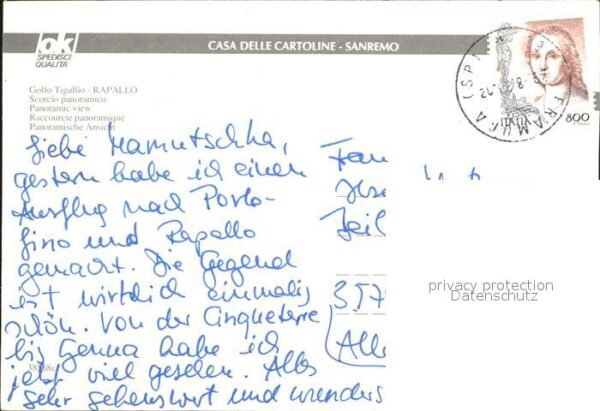 ok
SPEDISCI
QUALITA'
CASA DELLE CARTOLINE - SANREMO
Golfo Tigullio - RAPALLO
Scorcio panoramico
Panoramic view
Raccourcie panoramique
Panoramische Ansicht
Liebe Mamutschka,
gestern habe ich einen
Ausflug nach Porto-
fino und Rapallo
gemacht. Die Gegend
ist wirklich einmalig
schön. Von der Cinqueterre
bis Genua habe ich
jetzt viel gesehen. Alles
sehr sehenswert und wunders
Fam
Zeil
357
(Alle
FRAMURA (SP)
800
privacy protection
Datenschutz